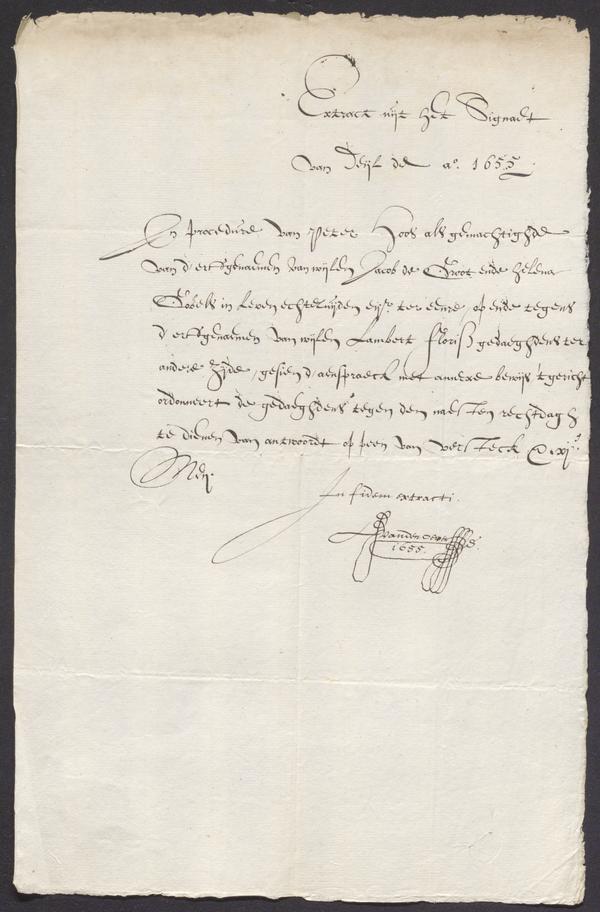 Extract uijt het Signaet
van Deijl de ao. 1655
In procedure van Peter Hoos als gemachtighde
van d'erffgenaemen van wijlen Jacob de Groot ende Helena
Gobels in leven echteluijden eijsr. ter eenre, op ende tegens
d'erffgenaemen van wijlen Lambert Floriss gedaeghdens ter
andere zijde, gesien d'aenspraeck met annexe bewijs 't gericht
ordonneert de gedaeghdens tegen den naesten rechtdagh
te dienen van antwoordt op peen van versteck
Meij.
In fidem extracti.
1655.